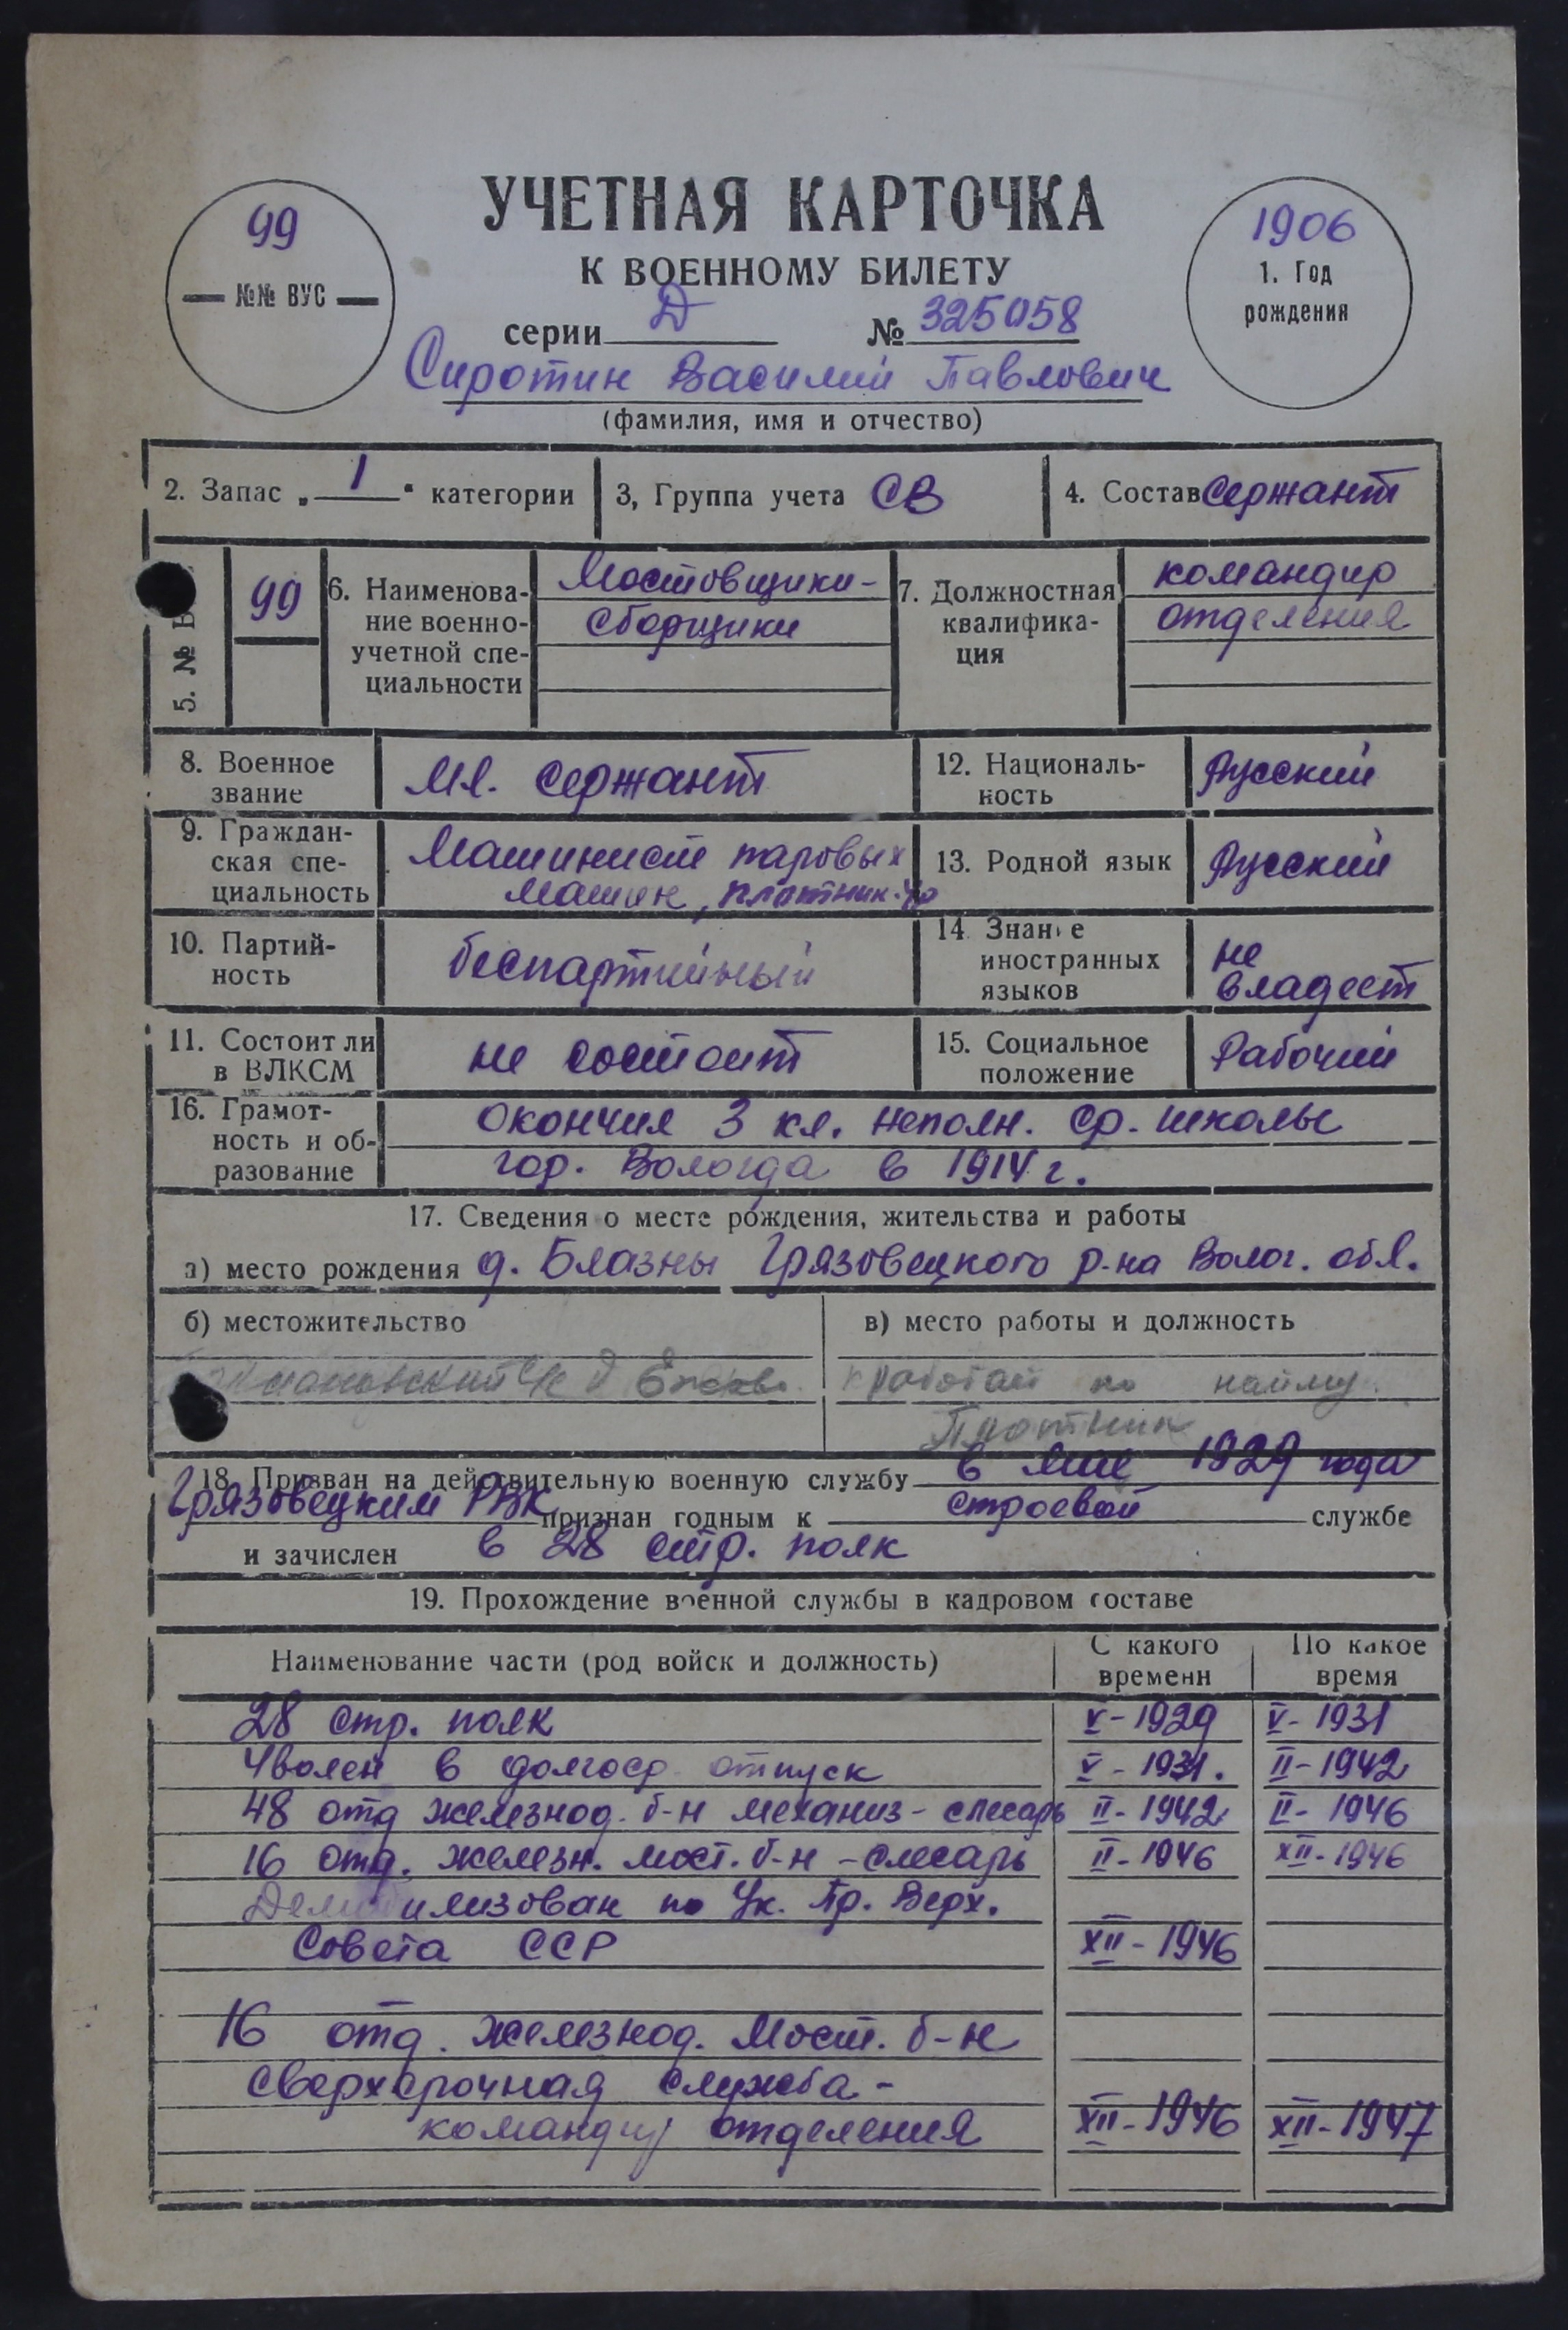 УЧЕТНАЯ КАРТОЧКА
К ВОЕННОМУ БИЛЕТУ
99
№№ ВУС
1906
1. Год
рождения
серии Д № 325058
Сиротин Василий Павлович
(фамилия, имя и отчество)
2. Запас „ 1 " категории
3, Группа учета СВ
4. Состав сержант
5. №
99
6. Наименова-
ние военно-
учетной спе-
циальности
Мостовщики-
сборщики
7. Должностная
квалифика-
ция
командир
отделения
8. Военное
звание
Мл. сержант
12. Националь-
ность
Русский
9. Граждан-
ская спе-
циальность
Машинист паровых
машин, плотник
13. Родной язык
Русский
10. Партий-
ность
беспартийный
14. Знание
иностранных
языков
не
владеет
11. Состоит ли
в ВЛКСМ
не состоит
15. Социальное
положение
Рабочий
16. Грамот-
ность и об-
разование
окончил 3 кл. неполн. ср. школы
гор. Вологда в 1914 г.
17. Сведения о месте рождения, жительства и работы
а) место рождения д. Блазны Грязовецкого р-на Волог. обл.
б) местожительство
в) место работы и должность
с/с д
работай по найму.
Плотник
18. Призван на действительную военную службу в мае 1929 года
Грязовецким РВК признан годным к строевой службе
и зачислен в 28 стр. полк
19. Прохождение военной службы в кадровом составе
Наименование части (род войск и должность)
С какого
времени
По какое
время
28 стр. полк V-1929 V-1931
Уволен в долгоср. отпуск V-1931. II-1942
48 отд железнод. б-н механиз-слесарь II-1942 II-1946
16 отд. железн. мост. б-н - слесарь II-1946 XII-1946
Демобилизован по Ук. Пр. Верх.
Совета ССР XII-1946
16 отд. железнод. Мост. б-н
сверхсрочная служба -
командир отделения XII-1946 XII-1947